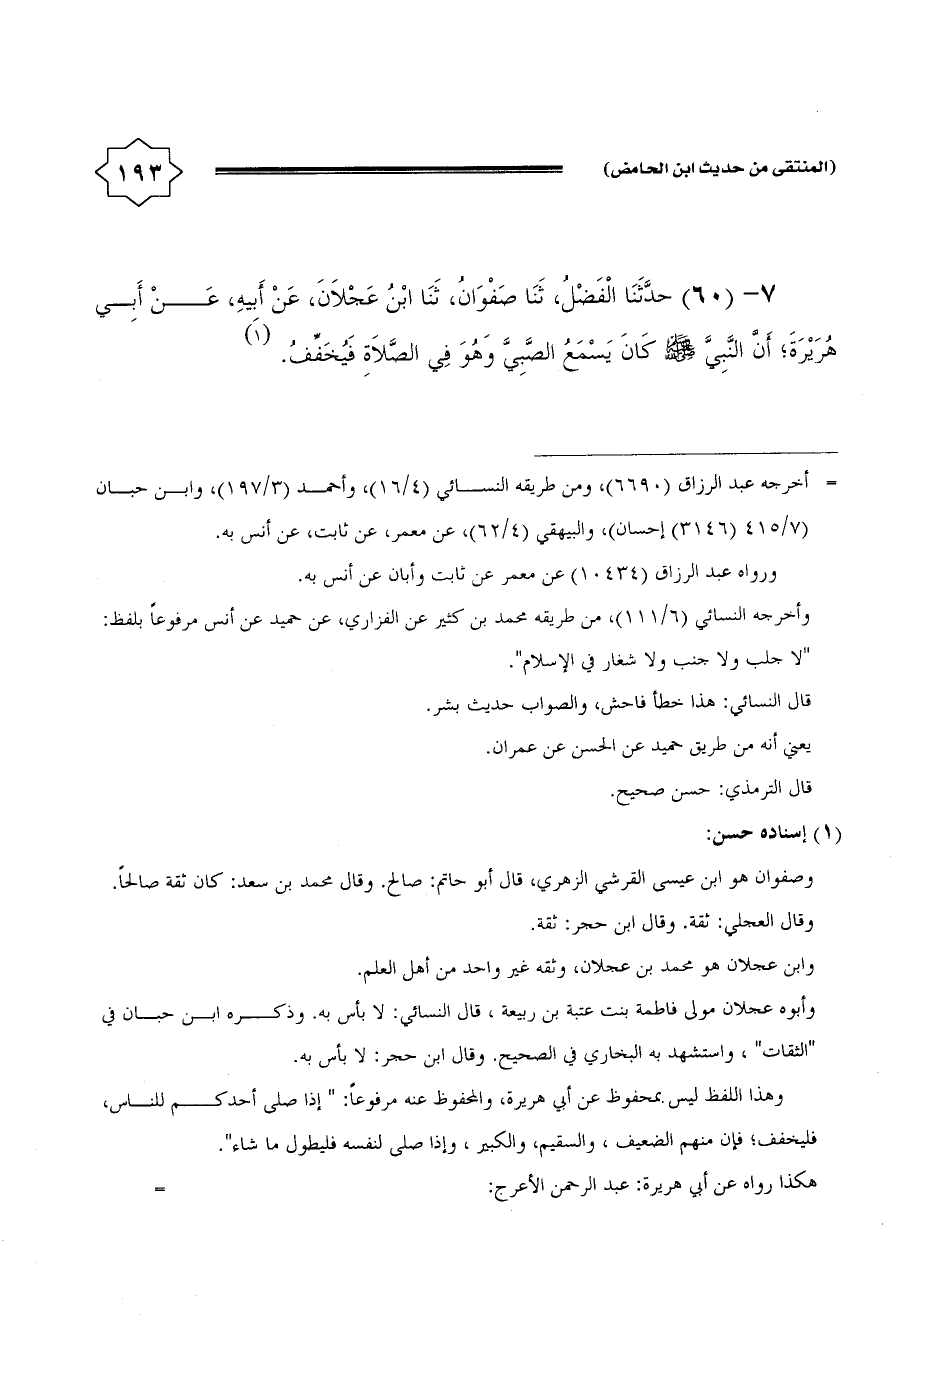 (المنتقى من حديث ابن الحامض)
١٩٣
٧- (٦٠) حدَّثَنَا الْفَضْلُ، ثَنَا صَفْوَانُ، ثَنَا ابْنُ عَجْلاَنَ، عَنْ أَبِيهِ، عَـــنْ أَبِـي
هُرَيْرَةَ؛ أَنَّ النَّبِيَّ ﷺ كَانَ يَسْمَعُ الصَّبِيَّ وَهُوَ فِي الصَّلاَةِ فَيُخَفِّفُ. (١)
= أخرجه عبد الرزاق (٦٦٩٠)، ومن طريقه النســائي (١٦/٤)، وأحمــد (١٩٧/٣)، وابــن حبــان
(٤١٥/٧ (٣١٤٦) إحسان)، والبيهقي (٦٢/٤)، عن معمر، عن ثابت، عن أنس به.
ورواه عبد الرزاق (١٠٤٣٤) عن معمر عن ثابت وأبان عن أنس به.
وأخرجه النسائي (١١١/٦)، من طريقه محمد بن كثير عن الفزاري، عن حميد عن أنس مرفوعاً بلفظ:
"لا جلب ولا جنب ولا شغار في الإسلام".
قال النسائي: هذا خطأ فاحش، والصواب حديث بشر.
يعني أنه من طريق حميد عن الحسن عن عمران.
قال الترمذي: حسن صحيح.
(١) إسناده حسن:
وصفوان هو ابن عيسى القرشي الزهري، قال أبو حاتم: صالح. وقال محمد بن سعد: كان ثقة صالحاً.
وقال العجلي: ثقة. وقال ابن حجر: ثقة.
وابن عجلان هو محمد بن عجلان، وثقه غير واحد من أهل العلم.
وأبوه عجلان مولى فاطمة بنت عتبة بن ربيعة ، قال النسائي: لا بأس به. وذكـــره ابــن حبــان في
"الثقات" ، واستشهد به البخاري في الصحيح. وقال ابن حجر: لا بأس به.
وهذا اللفظ ليس بمحفوظ عن أبي هريرة، والمحفوظ عنه مرفوعاً: " إذا صلى أحدكـــم للنــاس،
فليخفف؛ فإن منهم الضعيف ، والسقيم، والكبير ، وإذا صلى لنفسه فليطول ما شاء".
هكذا رواه عن أبي هريرة: عبد الرحمن الأعرج:
=